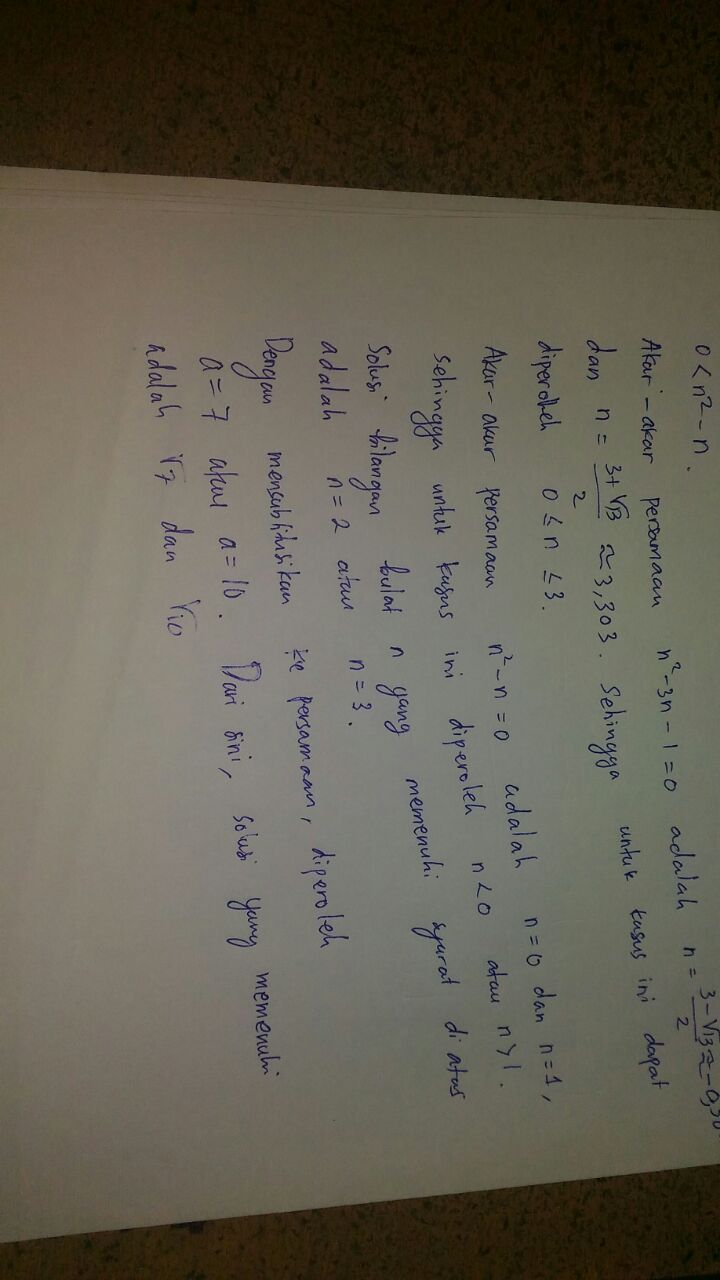 0 < n² - n.
Akar-akar persamaan n² - 3n - 1 = 0 adalah n = (3 - √13)/2 ≈ -0,30
dan n = (3 + √13)/2 ≈ 3,303. Sehingga untuk kasus ini dapat
diperoleh 0 ≤ n ≤ 3.
Akar-akar persamaan n² - n = 0 adalah n = 0 dan n = 1,
sehingga untuk kasus ini diperoleh n < 0 atau n > 1.
Solusi bilangan bulat n yang memenuhi syarat di atas
adalah n = 2 atau n = 3.
Dengan mensubtitusikan ke persamaan, diperoleh
a = 7 atau a = 10. Dari sini, solusi yang memenuhi
adalah √7 dan √10